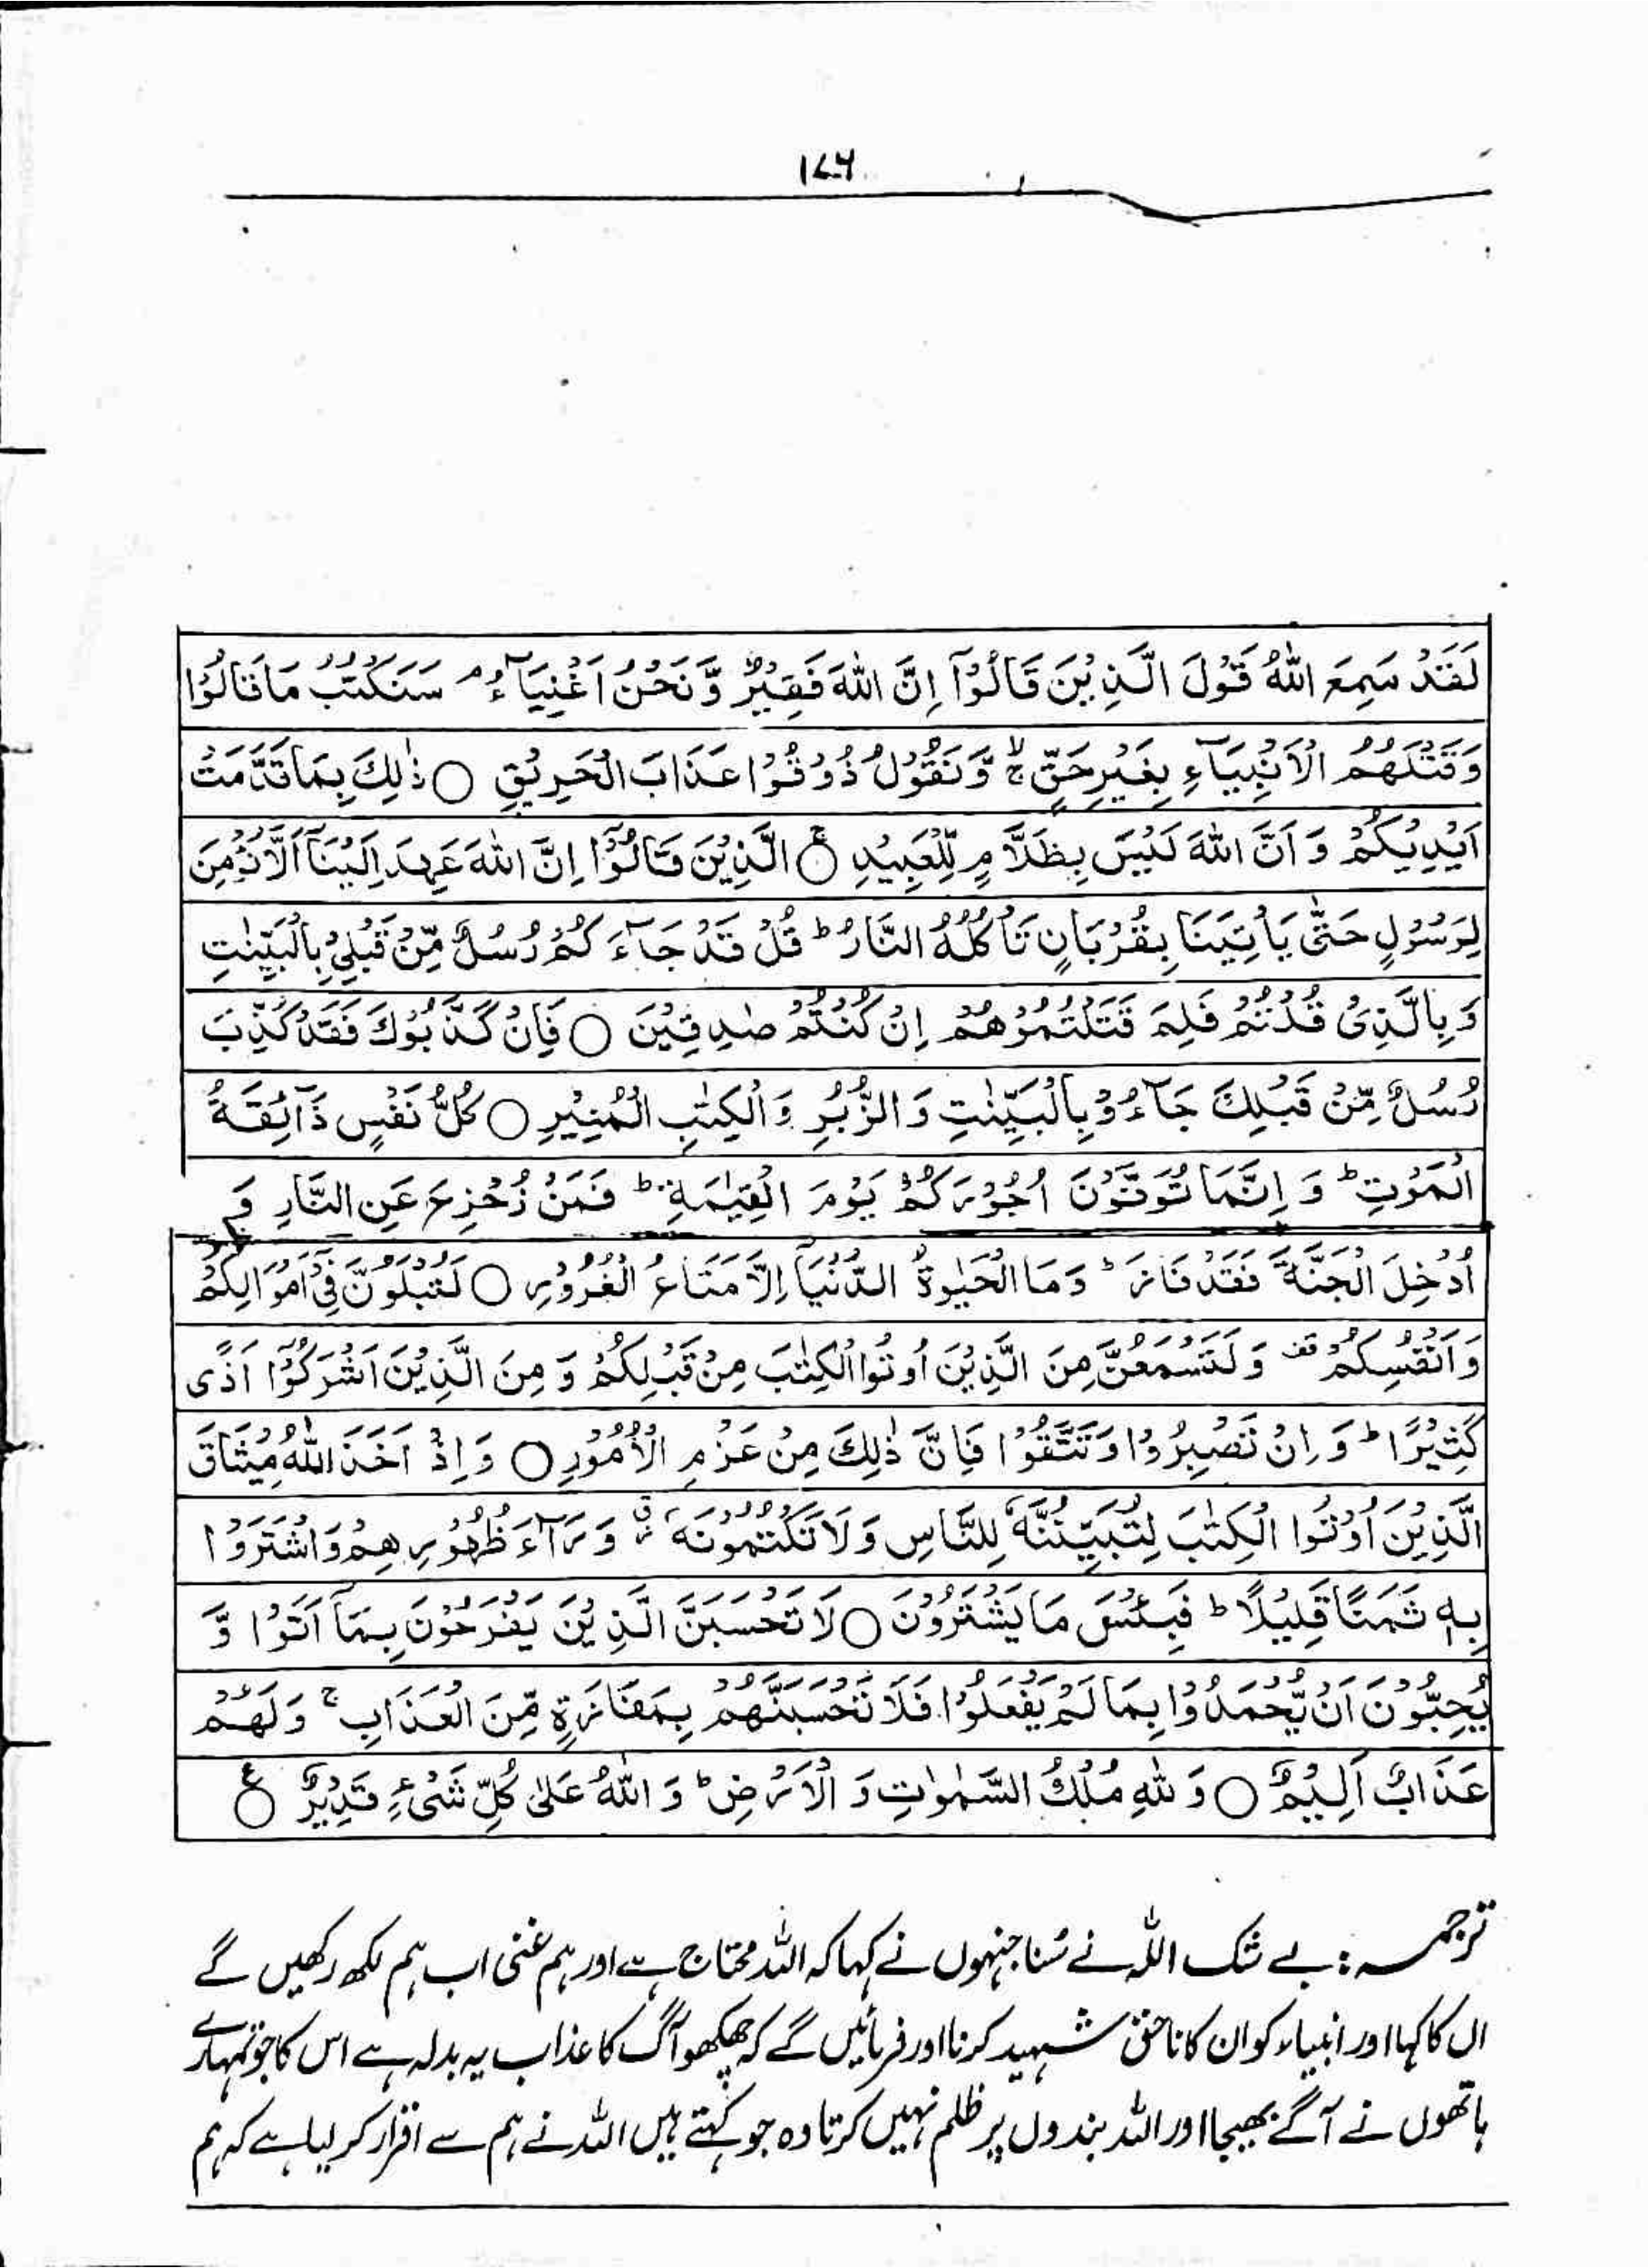 ۱۷۶
لَقَدْ سَمِعَ اللّٰهُ قَوْلَ الَّذِيْنَ قَالُوْۤا اِنَّ اللّٰهَ فَقِيْرٌ وَّ نَحْنُ اَغْنِيَآءُ ۘ سَنَكْتُبُ مَا قَالُوْا
وَقَتْلَهُمُ الْاَنْۢبِيَآءَ بِغَيْرِحَقٍّ ۙۚ وَّ نَقُوْلُ ذُوْقُوْا عَذَابَ الْحَرِيْقِ ○ ذٰلِكَ بِمَا قَدَّمَتْ
اَيْدِيْكُمْ وَ اَنَّ اللّٰهَ لَيْسَ بِظَلَّامٍ لِّلْعَبِيْدِ ○ۚ الَّذِيْنَ قَالُوْۤا اِنَّ اللّٰهَ عَهِدَ اِلَيْنَاۤ اَلَّا نُؤْمِنَ
لِرَسُوْلٍ حَتّٰى يَاْتِيَنَا بِقُرْبَانٍ تَاْكُلُهُ النَّارُ ؕ قُلْ قَدْ جَآءَ كُمْ رُسُلٌ مِّنْ قَبْلِيْ بِالْبَيِّنٰتِ
وَ بِالَّذِيْ قُلْتُمْ فَلِمَ قَتَلْتُمُوْهُمْ اِنْ كُنْتُمْ صٰدِقِيْنَ ○ فَاِنْ كَذَّ بُوْكَ فَقَدْ كُذِّبَ
رُسُلٌ مِّنْ قَبْلِكَ جَآءُوْ بِالْبَيِّنٰتِ وَ الزُّبُرِ وَ الْكِتٰبِ الْمُنِيْرِ ○ كُلُّ نَفْسٍ ذَآئِقَةُ
الْمَوْتِ ؕ وَ اِنَّمَا تُوَفَّوْنَ اُجُوْرَكُمْ يَوْمَ الْقِيٰمَةِ ؕ فَمَنْ زُحْزِحَ عَنِ النَّارِ وَ
اُدْخِلَ الْجَنَّةَ فَقَدْ فَازَ ؕ وَ مَا الْحَيٰوةُ الدُّنْيَاۤ اِلَّا مَتَاعُ الْغُرُوْرِ ○ لَتُبْلَوُنَّ فِيْۤ اَمْوَالِكُمْ
وَ اَنْفُسِكُمْ ۟ وَ لَتَسْمَعُنَّ مِنَ الَّذِيْنَ اُوتُوا الْكِتٰبَ مِنْ قَبْلِكُمْ وَ مِنَ الَّذِيْنَ اَشْرَكُوْۤا اَذًى
كَثِيْرًا ؕ وَ اِنْ تَصْبِرُوْا وَ تَتَّقُوْا فَاِنَّ ذٰلِكَ مِنْ عَزْمِ الْاُمُوْرِ ○ وَ اِذْ اَخَذَ اللّٰهُ مِيْثَاقَ
الَّذِيْنَ اُوْتُوا الْكِتٰبَ لَتُبَيِّنُنَّهٗ لِلنَّاسِ وَ لَا تَكْتُمُوْنَهٗ وَرَآءَ ظُهُوْرِهِمْ وَ اشْتَرَوْا
بِهٖ ثَمَنًا قَلِيْلًا ؕ فَبِئْسَ مَا يَشْتَرُوْنَ ○ لَا تَحْسَبَنَّ الَّذِيْنَ يَفْرَحُوْنَ بِمَاۤ اَتَوْا وَّ
يُحِبُّوْنَ اَنْ يُّحْمَدُوْا بِمَا لَمْ يَفْعَلُوْا فَلَا تَحْسَبَنَّهُمْ بِمَفَازَةٍ مِّنَ الْعَذَابِ ۚ وَلَهُمْ
عَذَابٌ اَلِيْمٌ ○ وَ لِلّٰهِ مُلْكُ السَّمٰوٰتِ وَ الْاَرْضِ ؕ وَ اللّٰهُ عَلٰى كُلِّ شَيْءٍ قَدِيْرٌ ○ ع
ترجمہ : بے شک اللہ نے سُنا جنہوں نے کہا کہ اللہ محتاج ہے اور ہم غنی اب ہم لکھ رکھیں گے
ال کا کہا اور انبیاء کو ان کا ناحق شہید کرنا اور فرمائیں گے کہ چکھو آگ کا عذاب یہ بدلہ ہے اس کا جو تمہارے
ہاتھوں نے آگے بھیجا اور اللہ بندوں پر ظلم نہیں کرتا وہ جو کہتے ہیں اللہ نے ہم سے اقرار کر لیا ہے کہ ہم